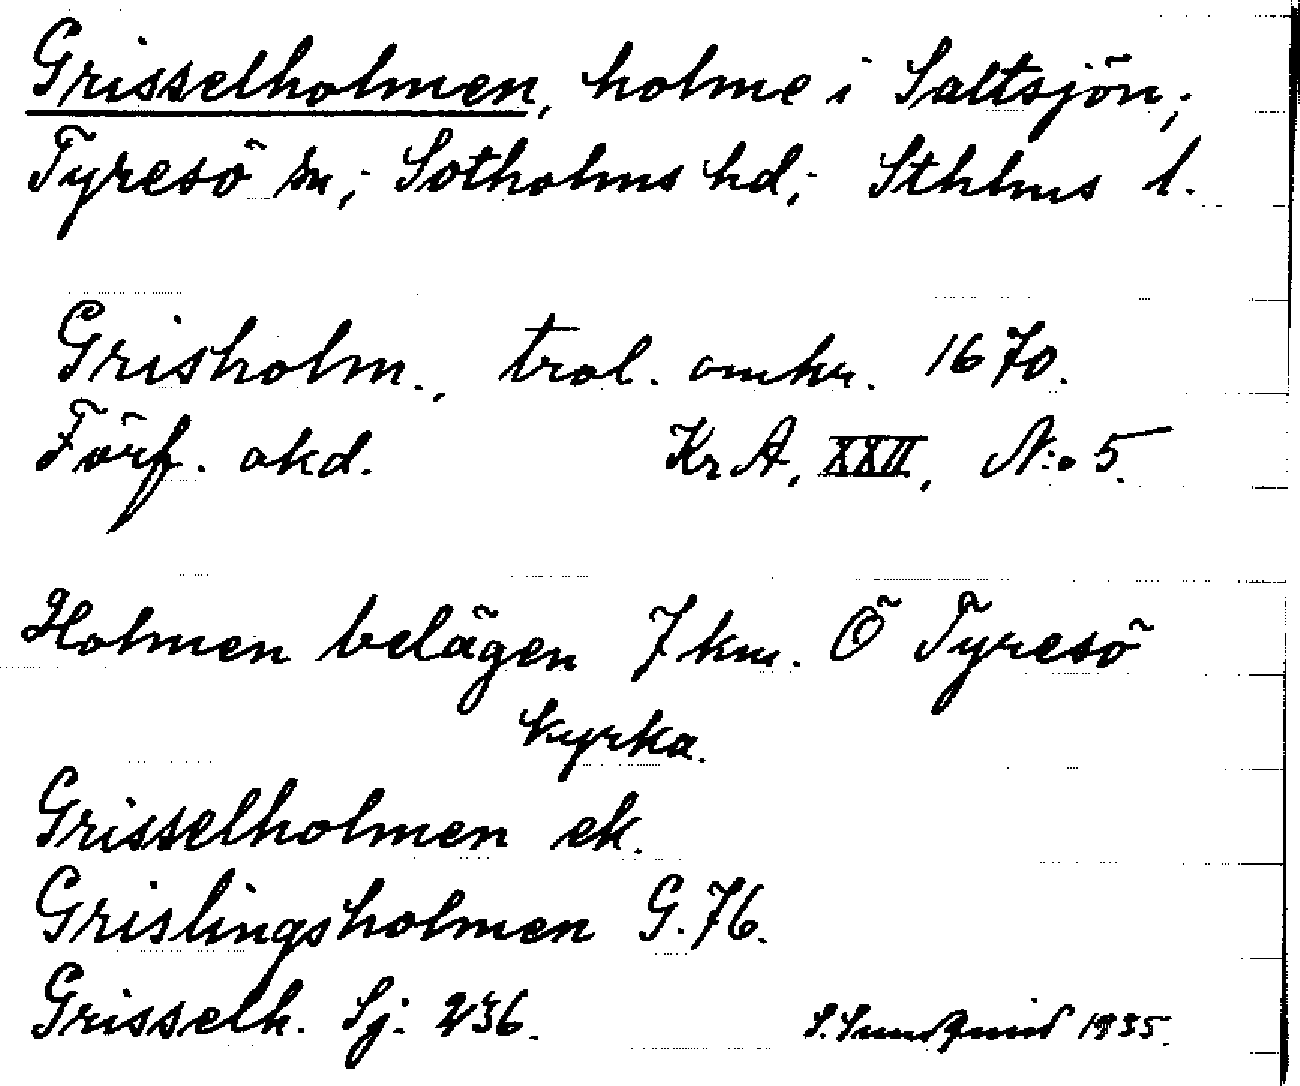 Grisselholmen, holme i Saltsjön;
Tyresö sn; Sotholms hd; Sthlms l.
Grisholm., trol. omkr. 1670.
Förf. okd. Kr A, XXII, N:o 5.
Holmen belägen 7 km. Ö Tyresö
kyrka.
Grisselholmen ek.
Grislingsholmen G. 76.
Grisselh. Sj. 236. S. Sundqvist 1935.